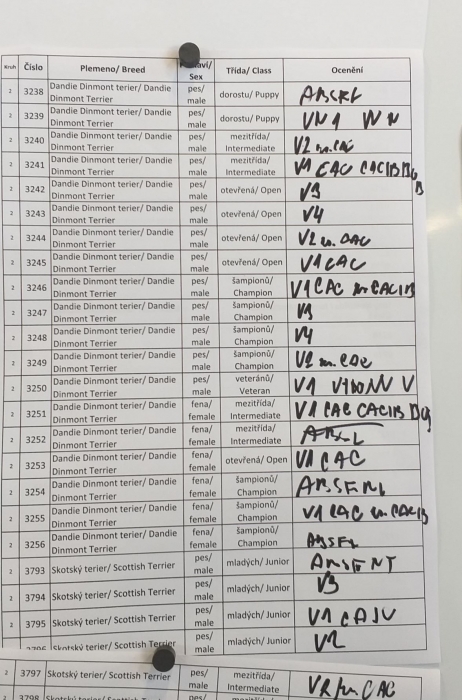 Kruh Číslo Plemeno/ Breed Pohlaví/ Sex Třída/ Class Ocenění
2 3238 Dandie Dinmont terier/ Dandie Dinmont Terrier pes/ male dorostu/ Puppy ABSENT
2 3239 Dandie Dinmont terier/ Dandie Dinmont Terrier pes/ male dorostu/ Puppy VN1
2 3240 Dandie Dinmont terier/ Dandie Dinmont Terrier pes/ male mezitřída/ Intermediate V2 r. CAC
2 3241 Dandie Dinmont terier/ Dandie Dinmont Terrier pes/ male mezitřída/ Intermediate V1 CAC CACIB
2 3242 Dandie Dinmont terier/ Dandie Dinmont Terrier pes/ male otevřená/ Open V3
2 3243 Dandie Dinmont terier/ Dandie Dinmont Terrier pes/ male otevřená/ Open V4
2 3244 Dandie Dinmont terier/ Dandie Dinmont Terrier pes/ male otevřená/ Open V2 r. CAC
2 3245 Dandie Dinmont terier/ Dandie Dinmont Terrier pes/ male otevřená/ Open V1 CAC
2 3246 Dandie Dinmont terier/ Dandie Dinmont Terrier pes/ male šampionů/ Champion V1 CAC r. CACIB
2 3247 Dandie Dinmont terier/ Dandie Dinmont Terrier pes/ male šampionů/ Champion V3
2 3248 Dandie Dinmont terier/ Dandie Dinmont Terrier pes/ male šampionů/ Champion V4
2 3249 Dandie Dinmont terier/ Dandie Dinmont Terrier pes/ male šampionů/ Champion V2 r. CAC
2 3250 Dandie Dinmont terier/ Dandie Dinmont Terrier pes/ male veteránů/ Veteran V1
2 3251 Dandie Dinmont terier/ Dandie Dinmont Terrier fena/ female mezitřída/ Intermediate V1 CAC CACIB
2 3252 Dandie Dinmont terier/ Dandie Dinmont Terrier fena/ female mezitřída/ Intermediate
2 3253 Dandie Dinmont terier/ Dandie Dinmont Terrier fena/ female otevřená/ Open V1 CAC
2 3254 Dandie Dinmont terier/ Dandie Dinmont Terrier fena/ female šampionů/ Champion ABSENT
2 3255 Dandie Dinmont terier/ Dandie Dinmont Terrier fena/ female šampionů/ Champion V1 CAC r. CACIB
2 3256 Dandie Dinmont terier/ Dandie Dinmont Terrier fena/ female šampionů/ Champion
2 3793 Skotský terier/ Scottish Terrier pes/ male mladých/ Junior ABSENT
2 3794 Skotský terier/ Scottish Terrier pes/ male mladých/ Junior V3
2 3795 Skotský terier/ Scottish Terrier pes/ male mladých/ Junior V1 CAJC
Skotský terier/ Scottish Terrier pes/ male mladých/ Junior V2
2 3797 Skotský terier/ Scottish Terrier pes/ male mezitřída/ Intermediate V2 r. CAC
3798 pes/